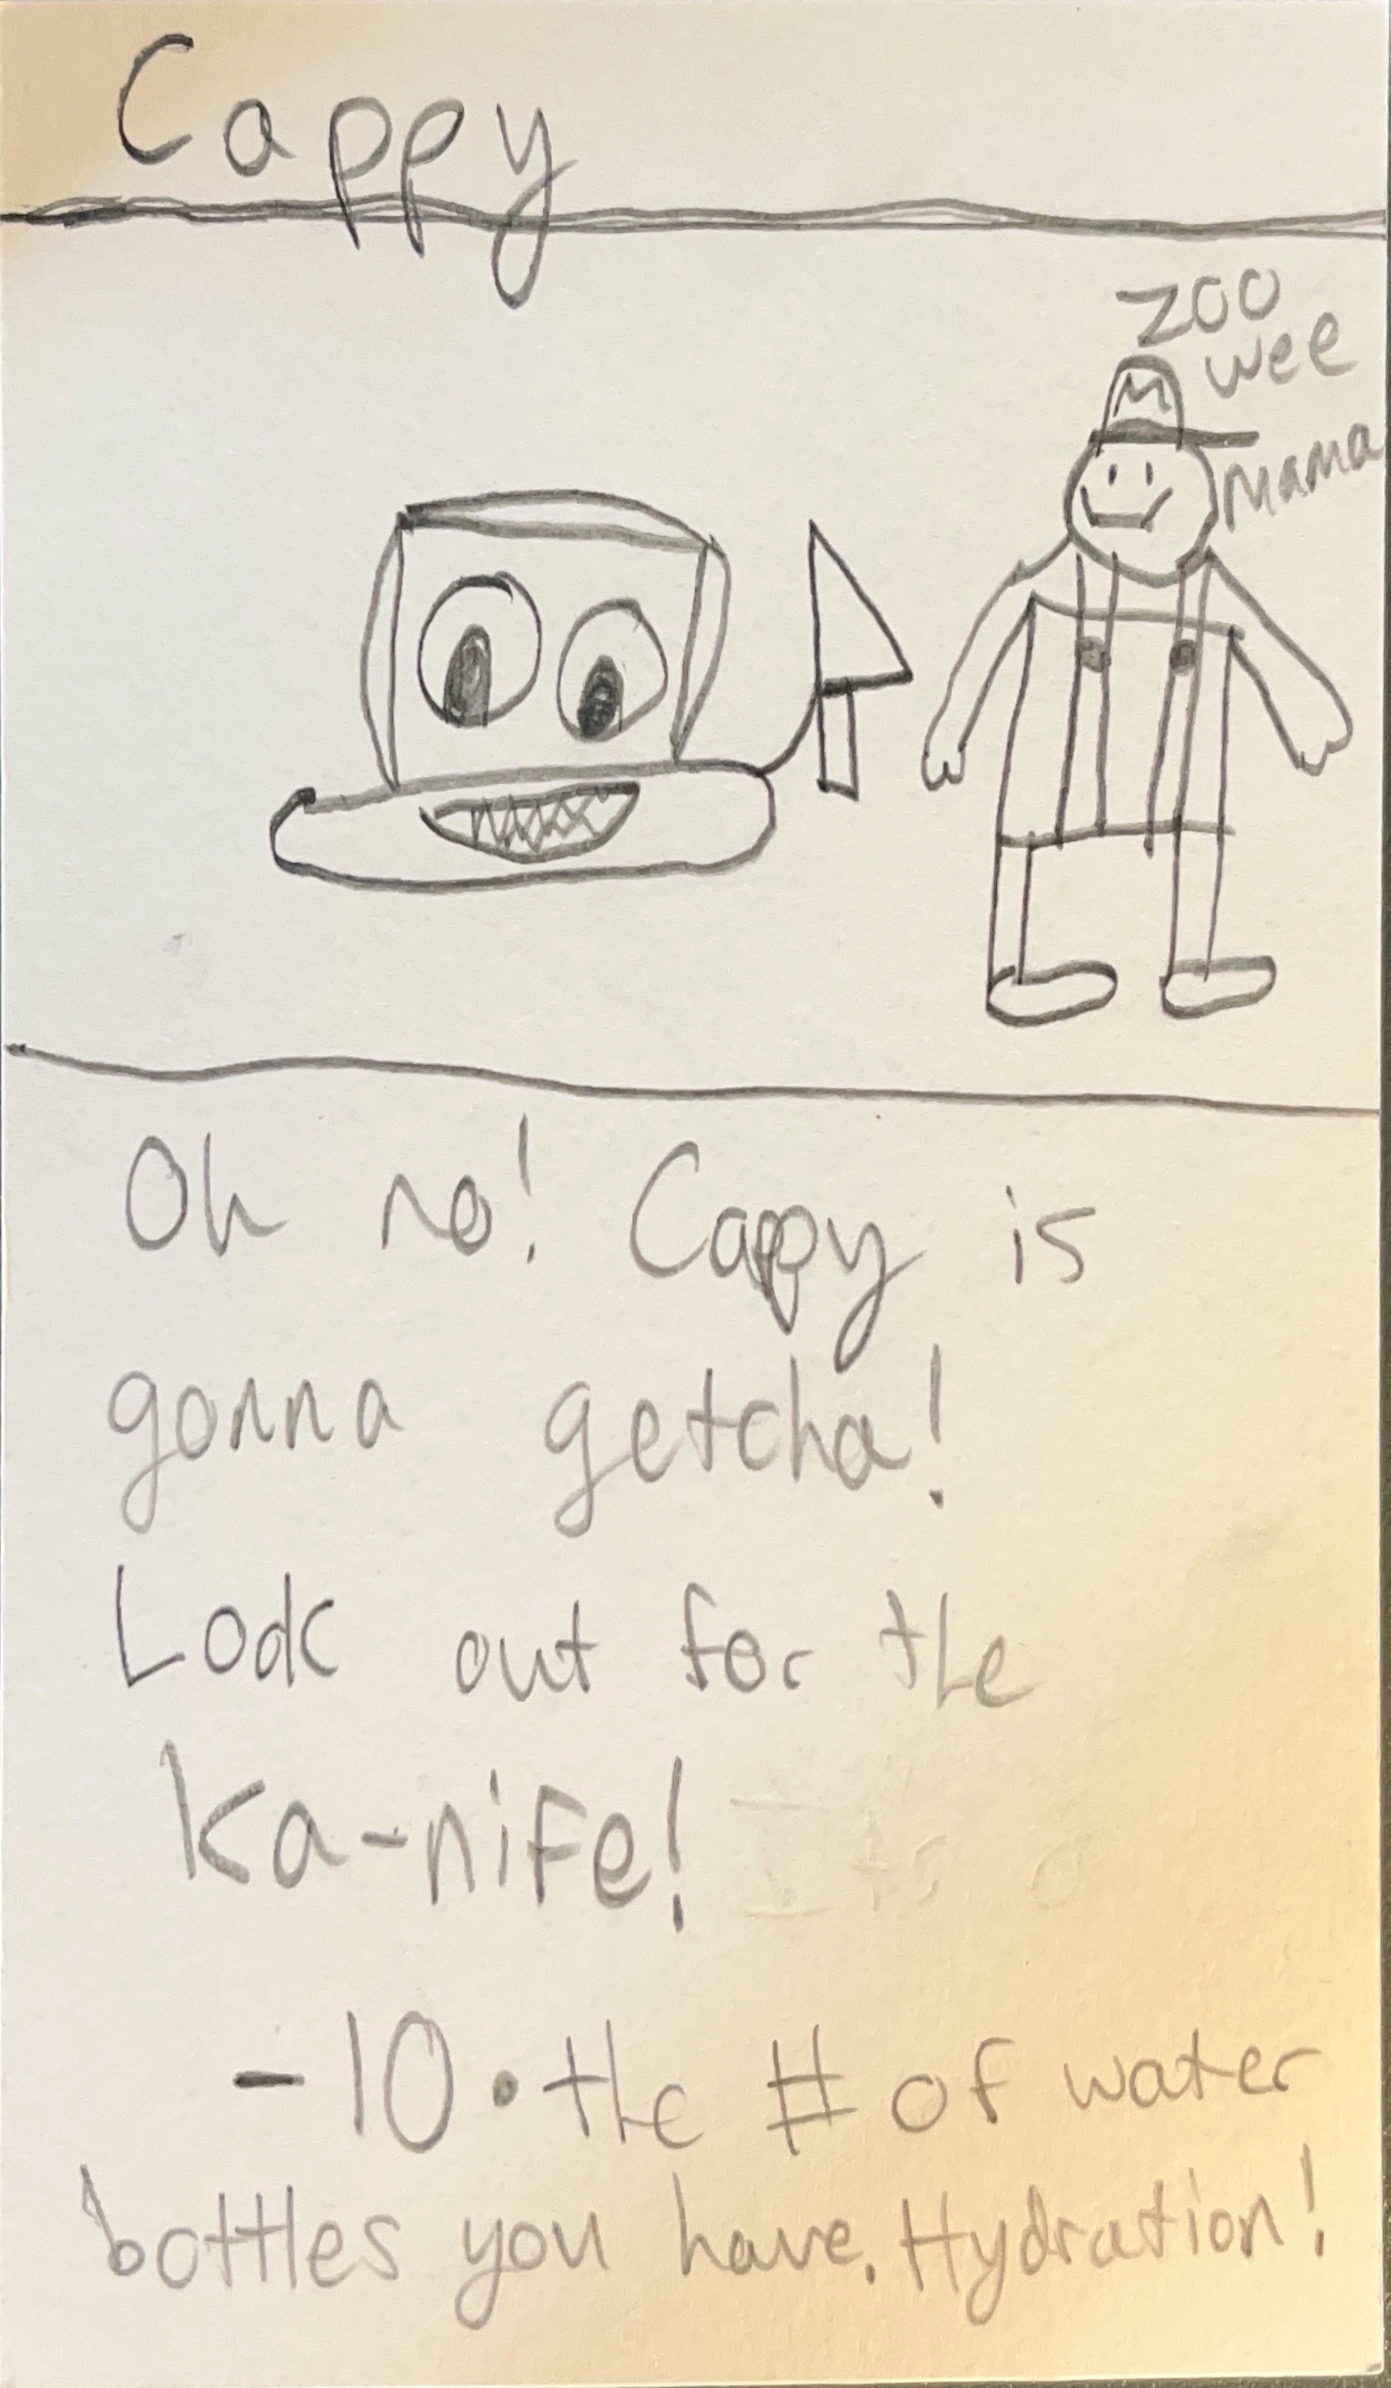 Cappy
zoo
wee
mama
M
Oh no! Cappy is
gonna getcha!
Look out for the
ka-nife! Its a
-10 • the # of water
bottles you have. Hydration!